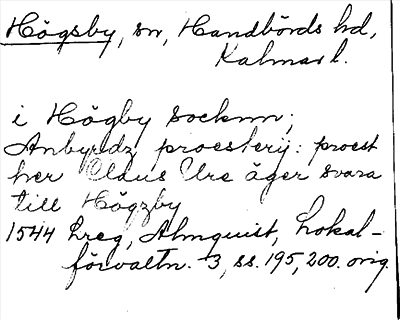 Högsby, sn, Handbörds hd,
Kalmar l.
i Högby socknn;
Anbyrdz proesterij: proest
her Claus Ure äger svara
till Högzby
1544 Lreg, Almquist, Lokal-
förvaltn. 3, ss. 195, 200. orig.